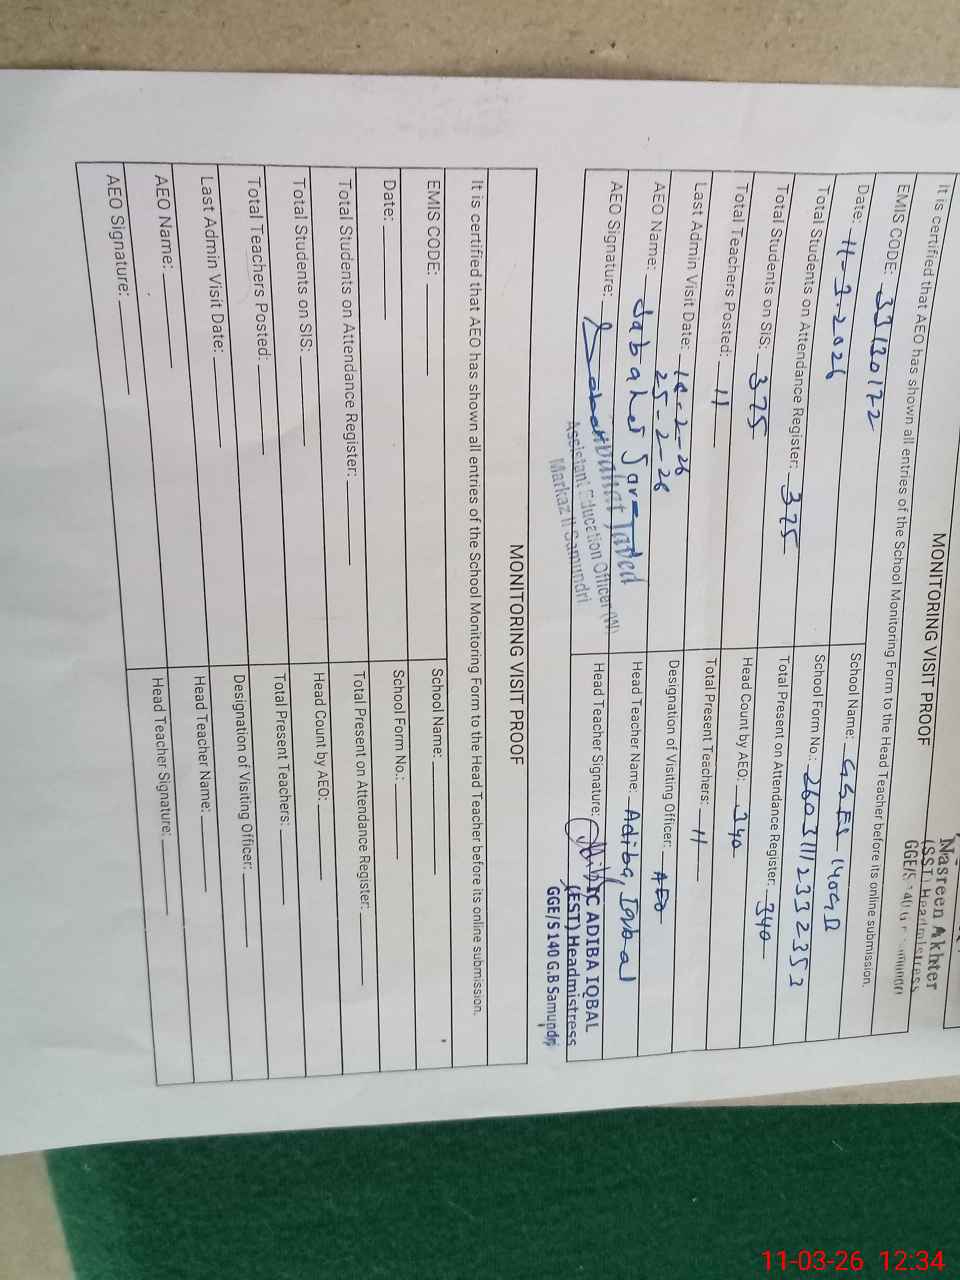 Nasreen Akhter
(SST) Headmistress
GGE/S 140 G.B Samundri
MONITORING VISIT PROOF
It is certified that AEO has shown all entries of the School Monitoring Form to the Head Teacher before its online submission.
EMIS CODE: 33130172 School Name: GGES 140GB
Date: 11-3-2026 School Form No.: 2603111233235
Total Students on Attendance Register: 375 Total Present on Attendance Register: 340
Total Students on SIS: 375 Head Count by AEO: 340
Total Teachers Posted: 11 Total Present Teachers: 11
Last Admin Visit Date: 25-2-26 Designation of Visiting Officer: AEO
AEO Name: Head Teacher Name: Adiba Iqbal
AEO Signature: Head Teacher Signature:
Javed
Assistant Education Officer (W)
Markaz II Samundri
IC ADIBA IQBAL
(EST) Headmistress
GGE/S 140 G.B Samundri
MONITORING VISIT PROOF
It is certified that AEO has shown all entries of the School Monitoring Form to the Head Teacher before its online submission.
EMIS CODE: School Name:
Date: School Form No.:
Total Students on Attendance Register: Total Present on Attendance Register:
Total Students on SIS: Head Count by AEO:
Total Teachers Posted: Total Present Teachers:
Last Admin Visit Date: Designation of Visiting Officer:
AEO Name: Head Teacher Name:
AEO Signature: Head Teacher Signature:
11-03-26 12:34